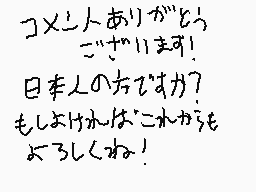 コメントありがとう
ございます!
日本人の方ですか?
もしよければこれからも
よろしくね!